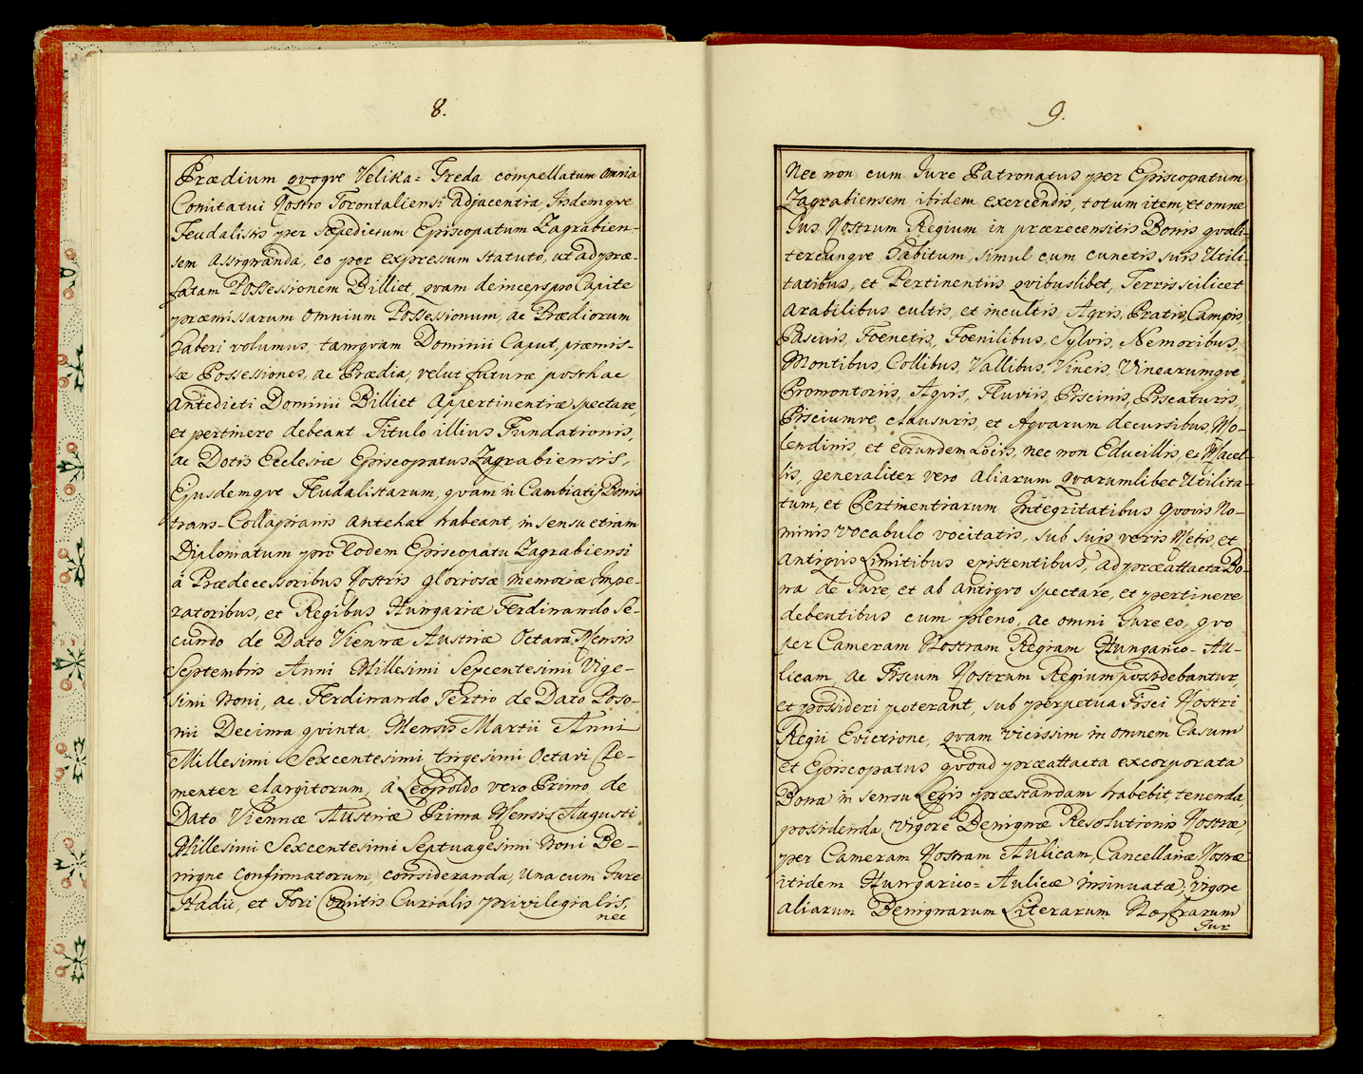 8.
Prædium qvoqve Velika= Greda compellatum omnia
Comitatui Nostro Torontaliensi adjacentia Iisdemqve
Feudalistis per Sæpedictum Episcopatum Zagrabien-
sem assignanda, eo per expressum statuto, ut ad præ-
fatam Possessionem Billiet, qvam deinceps pro Capite
præmissarum omnium Possessionum, ac Prædiorum
haberi volumus, tamqvam Dominii Caput, præmis-
sæ Possessiones, ac Prædia, velut futuræ posthac
antedicti Dominii Billiet Appertinentiæ spectare,
et pertinere debeant Titulo illius Fundationis,
ac Dotis Ecclesiæ Episcopatus Zagrabiensis,
Ejusdemqve Feudalistarum, qvam in Cambiatis Bonis
trans-Collapianis antehac habeant, in sensu etiam
Diplomatum pro Eodem Episcopatu Zagrabiensi
à Prædecessoribus Nostris gloriosæ memoriæ Impe-
ratoribus, et Regibus Hungariæ Ferdinando Se-
cundo de Dato Viennæ Austriæ Octava Mensis
Septembris Anni Millesimi Sexcentesimi Vige-
simi Noni, ac Ferdinando Tertio de Dato Poso-
nii Decima qvinta Mensis Martii Anni
Millesimi Sexcentesimi trigesimi Octavi Cle-
menter elargitorum, à Leopoldo vero Primo de
Dato Viennæ Austriæ Prima Mensis Augusti
Millesimi Sexcentesimi Septuagesimi Noni Be-
nigne confirmatorum, consideranda, una cum Jure
Gladii, et Fori Comitis Curialis privilegialis,
nec
9.
Nec non cum Jure Patronatus per Episcopatum
Zagrabiensem ibidem exercendis, totum item, et omne
Jus Nostrum Regium in prærecensitis Bonis qvali-
tercunqve habitum, simul cum cunctis suis Utili-
tatibus, et Pertinentiis qvibuslibet, Terris scilicet
arabilibus cultis, et incultis, Agris, Pratis, Campis,
Pascuis, Foenetis, Foenilibus, Sylvis, Nemoribus,
Montibus, Collibus, Vallibus, Vineis, Vinearumqve
Promontoriis, Aqvis, Fluviis, Piscinis, Piscaturis,
Pisciumve clausuris, et Aqvarum decursibus, Mo-
lendinis, et eorundem Lois, nec non Educillis, et Macel-
lis, generaliter vero aliarum qvarumlibet Utilita-
tum, et Pertinentiarum Integritatibus qvovis No-
minis vocabulo vocitatis, sub suis veris Metis, et
antiqvis Limitibus existentibus, ad præattacta Bo-
na de Jure, et ab antiqvo spectare, et pertinere
debentibus cum pleno, ac omni Jure eo, qvo
per Cameram Nostram Regiam Hungarico-Au-
licam, ac Fiscum Nostrum Regium possidebantur,
et possideri poterant, sub perpetua Fisci Nostri
Regii Evictione, qvam vicissim in omnem Casum
et Episcopatus qvoad præattacta excorporata
Bona in sensu Legis præstandam habebit, tenenda,
possidenda, vigore Benignæ Resolutionis Nostræ,
per Cameram Nostram Aulicam, Cancellariæ Nostræ
itidem Hungarico=Aulicæ insinuatæ, vigore
aliarum Benignarum Literarum Nostrarum
Jur